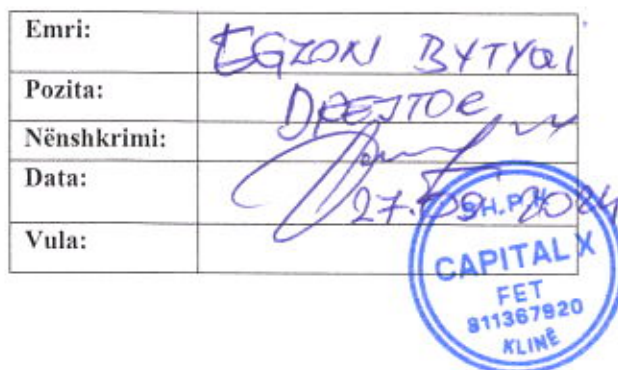 Emri: EGZON BYTYQI
Pozita: DREJTOR
Nënshkrimi:
Data: 27.09.2024
Vula:
SH.P.K
CAPITAL X
FET
811367920
KLINË